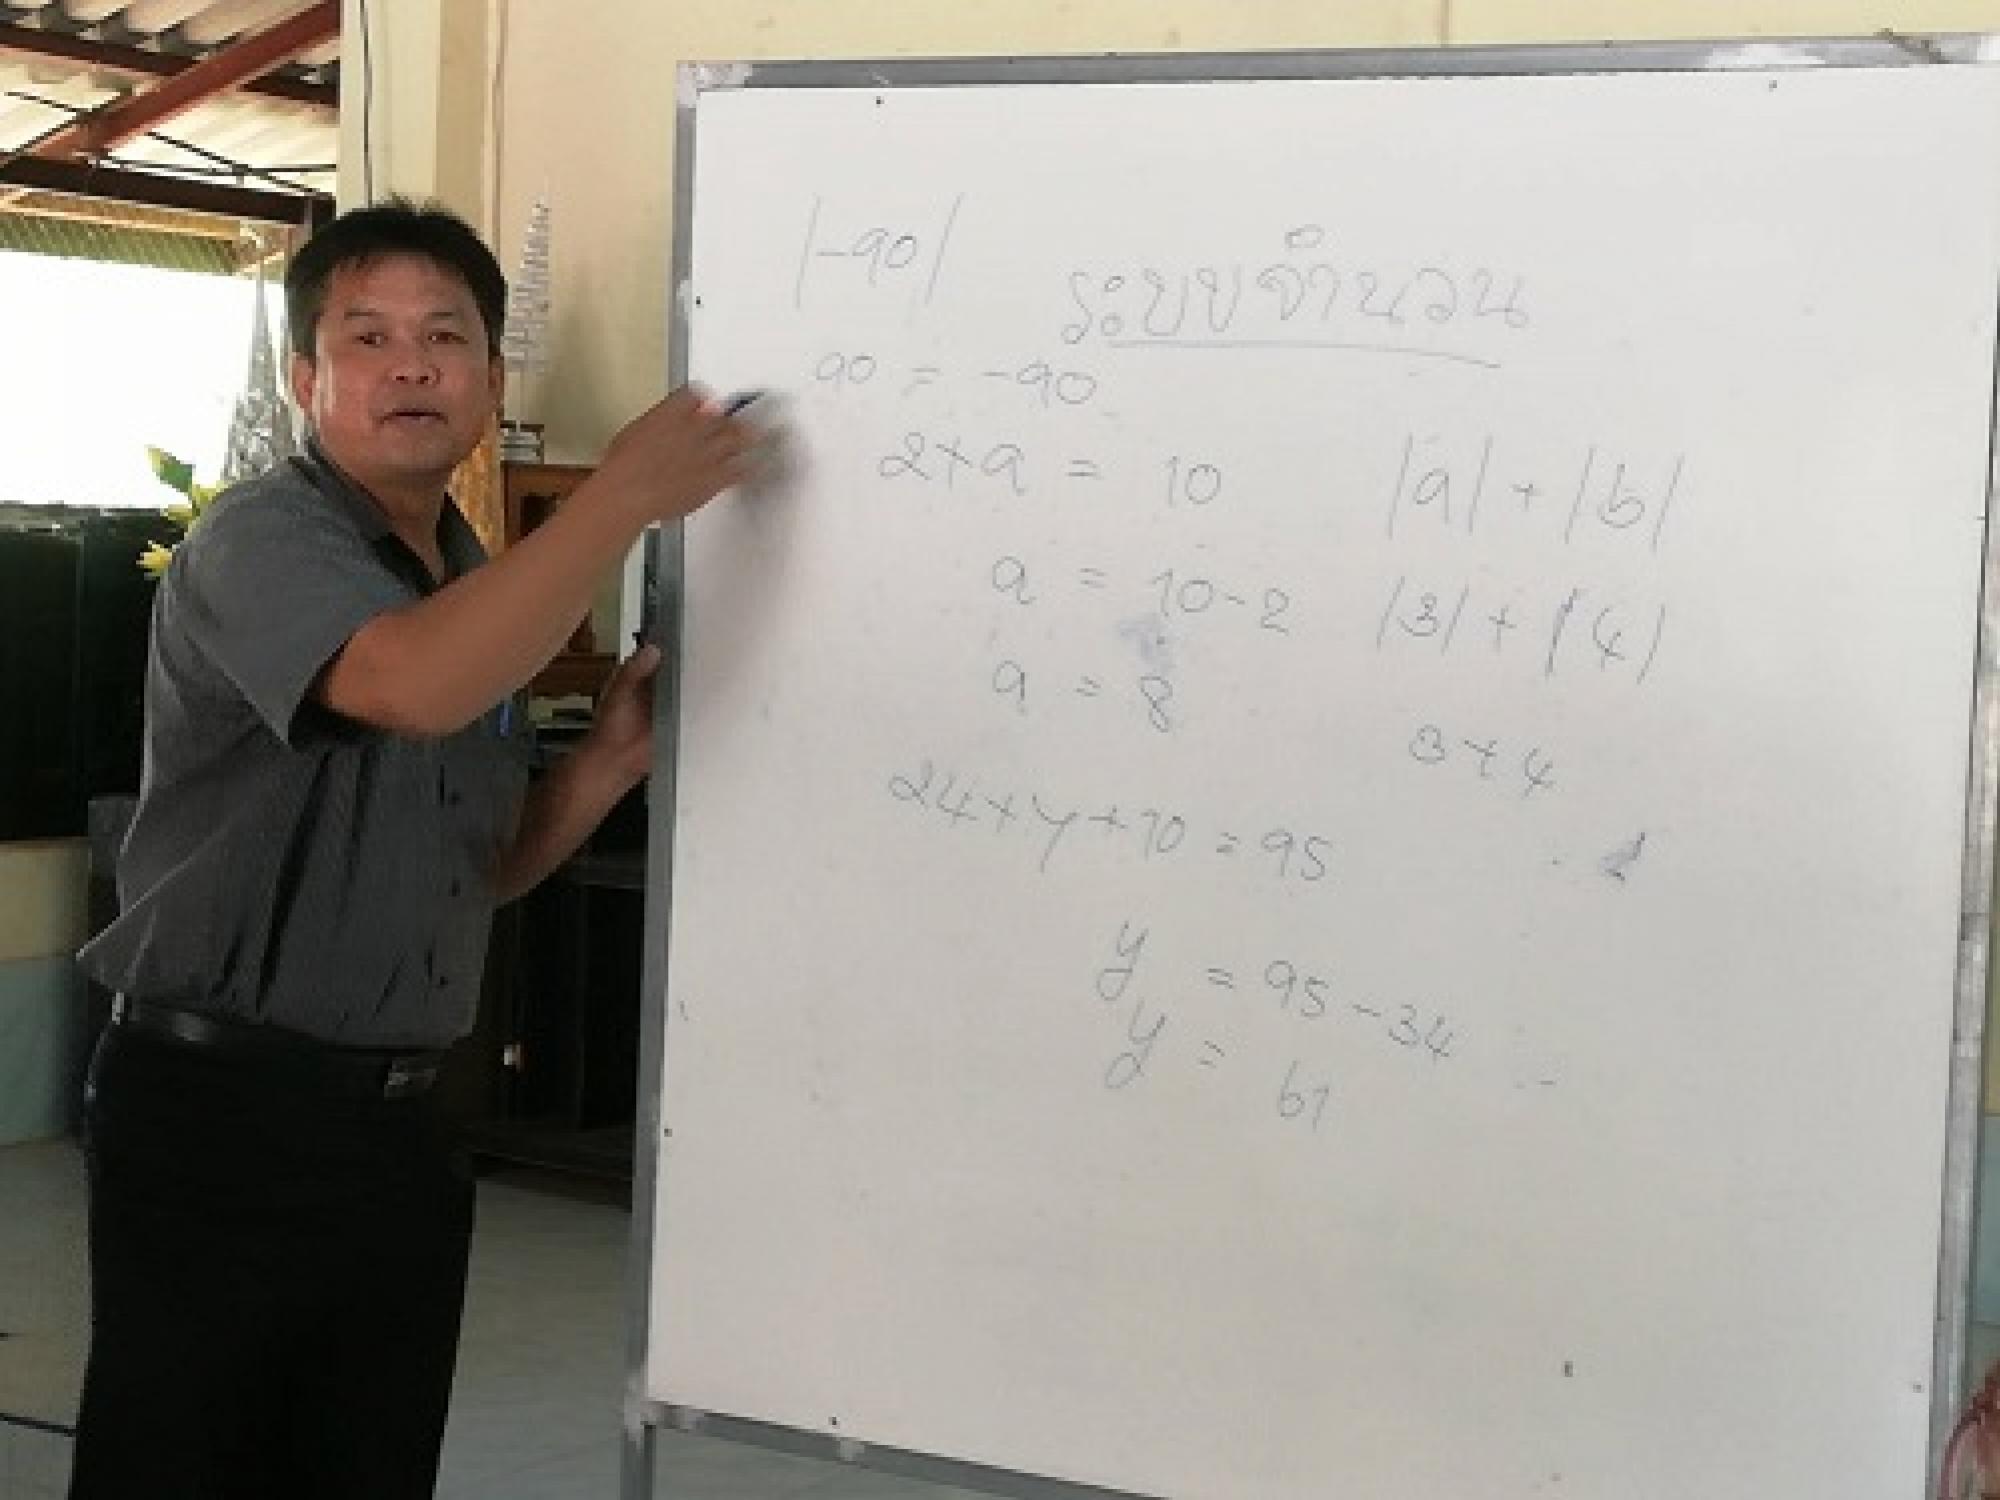 |-90|
ระบบจำนวน
90 = -90
2+a = 10
a = 10-2
a = 8
24+y+10 = 95
y = 95-34
y = 61
|a| + |b|
|3| + |4|
3+4